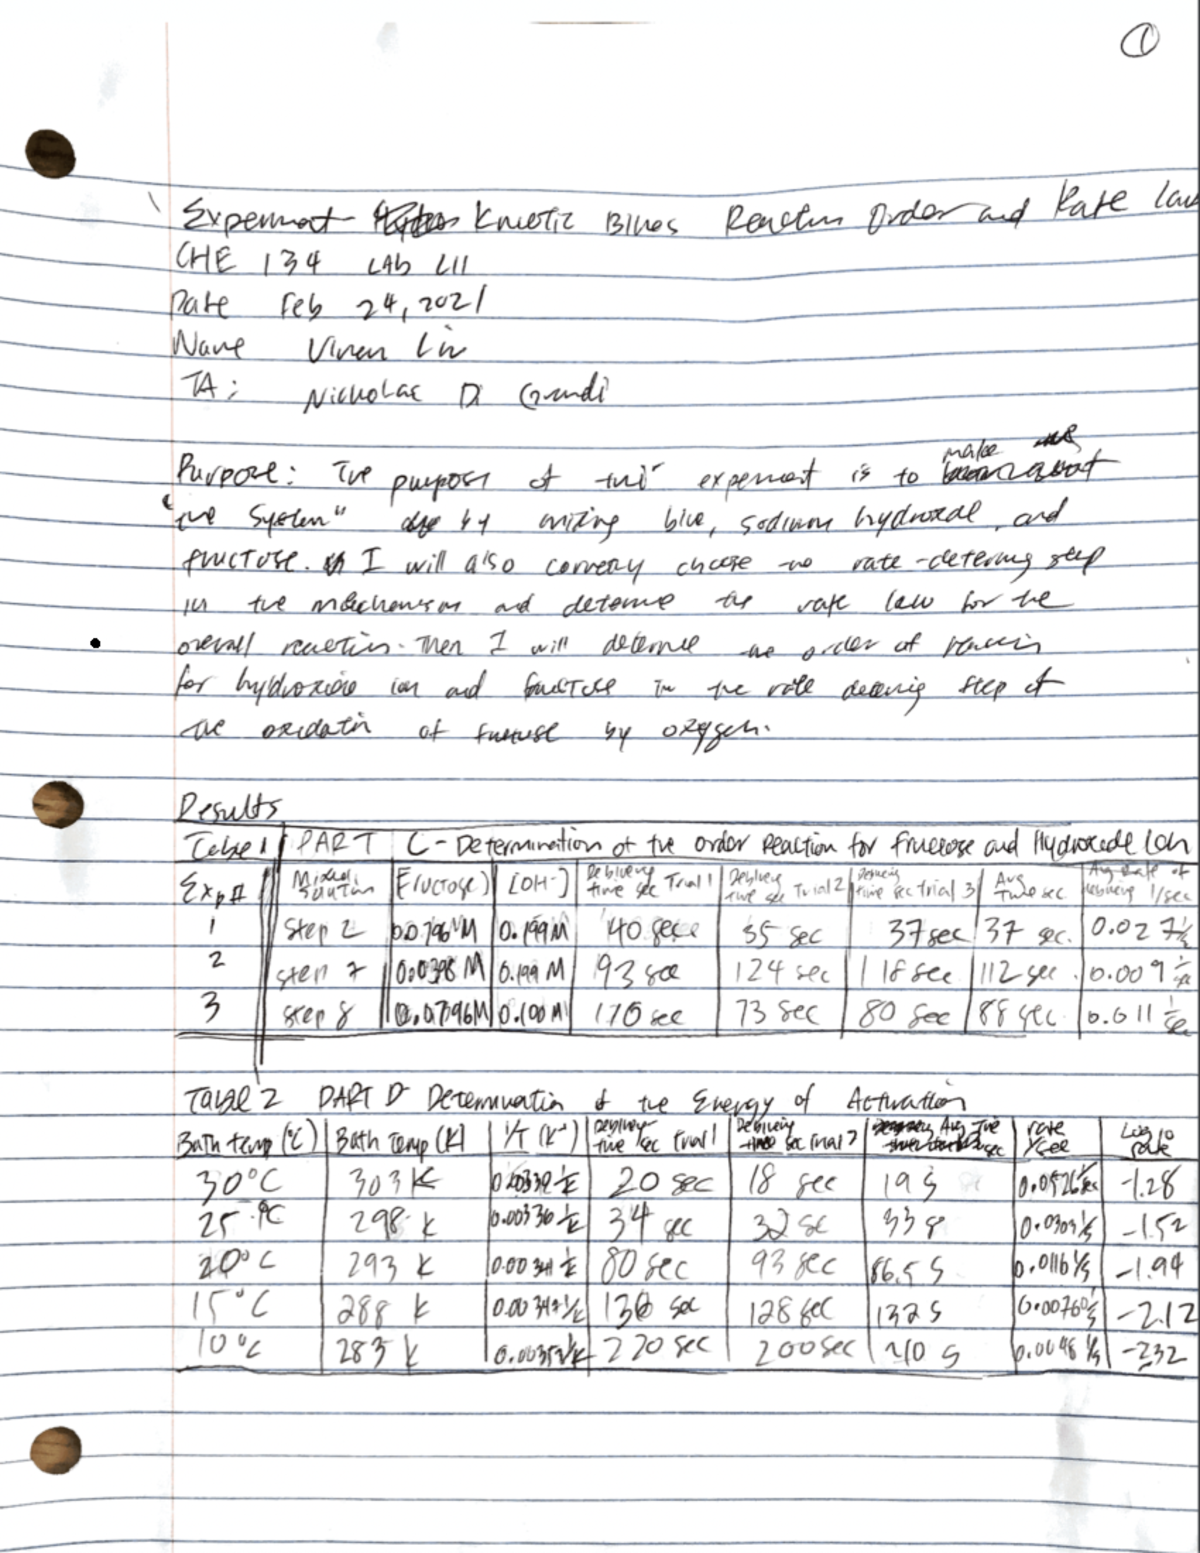 ①
Experiment Kinetic Blues Reaction Order and Rate Law
CHE 134 LAB L11
Date Feb 24, 2021
Name Liu
TA: Nicholas Di Grandi
make
Purpose: The purpose of this experiment is to
"the System" by mixing blue, sodium hydroxide, and
fructose. I will also choose the rate-determing step
in the mechanism and determine the rate law for the
overall reaction. Then I will determine the order of
for hydroxide ion and fructose in the rate step of
the oxidation of fructose by oxygen.
Results
Table 1 PART C - Determination of the order Reaction for fructose and Hydroxide Ion
Exp# Mixed Solution [Fructose] [OH-] Deblueing time sec Trial 1 Deblueing time sec Trial 2 Deblueing time sec trial 3 Avg Time sec. Avg Rate of Deblueing 1/sec
1 step 2 0.0796 M 0.199 M 40 sec 35 sec 37 sec 37 sec. 0.027 1/s
2 step 7 0.0398 M 0.199 M 93 sec 124 sec 118 sec 112 sec 0.009 1/sec
3 step 8 0.0796M 0.100 M 73 sec 80 sec 88 sec. 0.011 1/sec
Table 2 PART D Determination of the Energy of Activation
Bath temp (°C) Bath Temp (K) 1/T (K-1) Deblueing time sec Trial 1 Deblueing sec Trial 2 Avg Time sec rate 1/sec Log10 rate
30°C 303 K 0.00330 1/K 20 sec 18 sec 19 s 0.0526 1/sec -1.28
25 °C 298 K 0.00336 1/K 34 sec 32 sec 33 s 0.0303 1/s -1.52
20°C 293 K 0.00341 1/K 80 sec 93 sec 86.5 s 0.0116 1/s -1.94
15°C 288 K 0.00347 1/K 136 sec 128 sec 132 s 0.00760 1/s -2.12
10°C 283 K 0.00353 1/K 220 sec 200 sec 210 s 0.0048 1/s -2.32